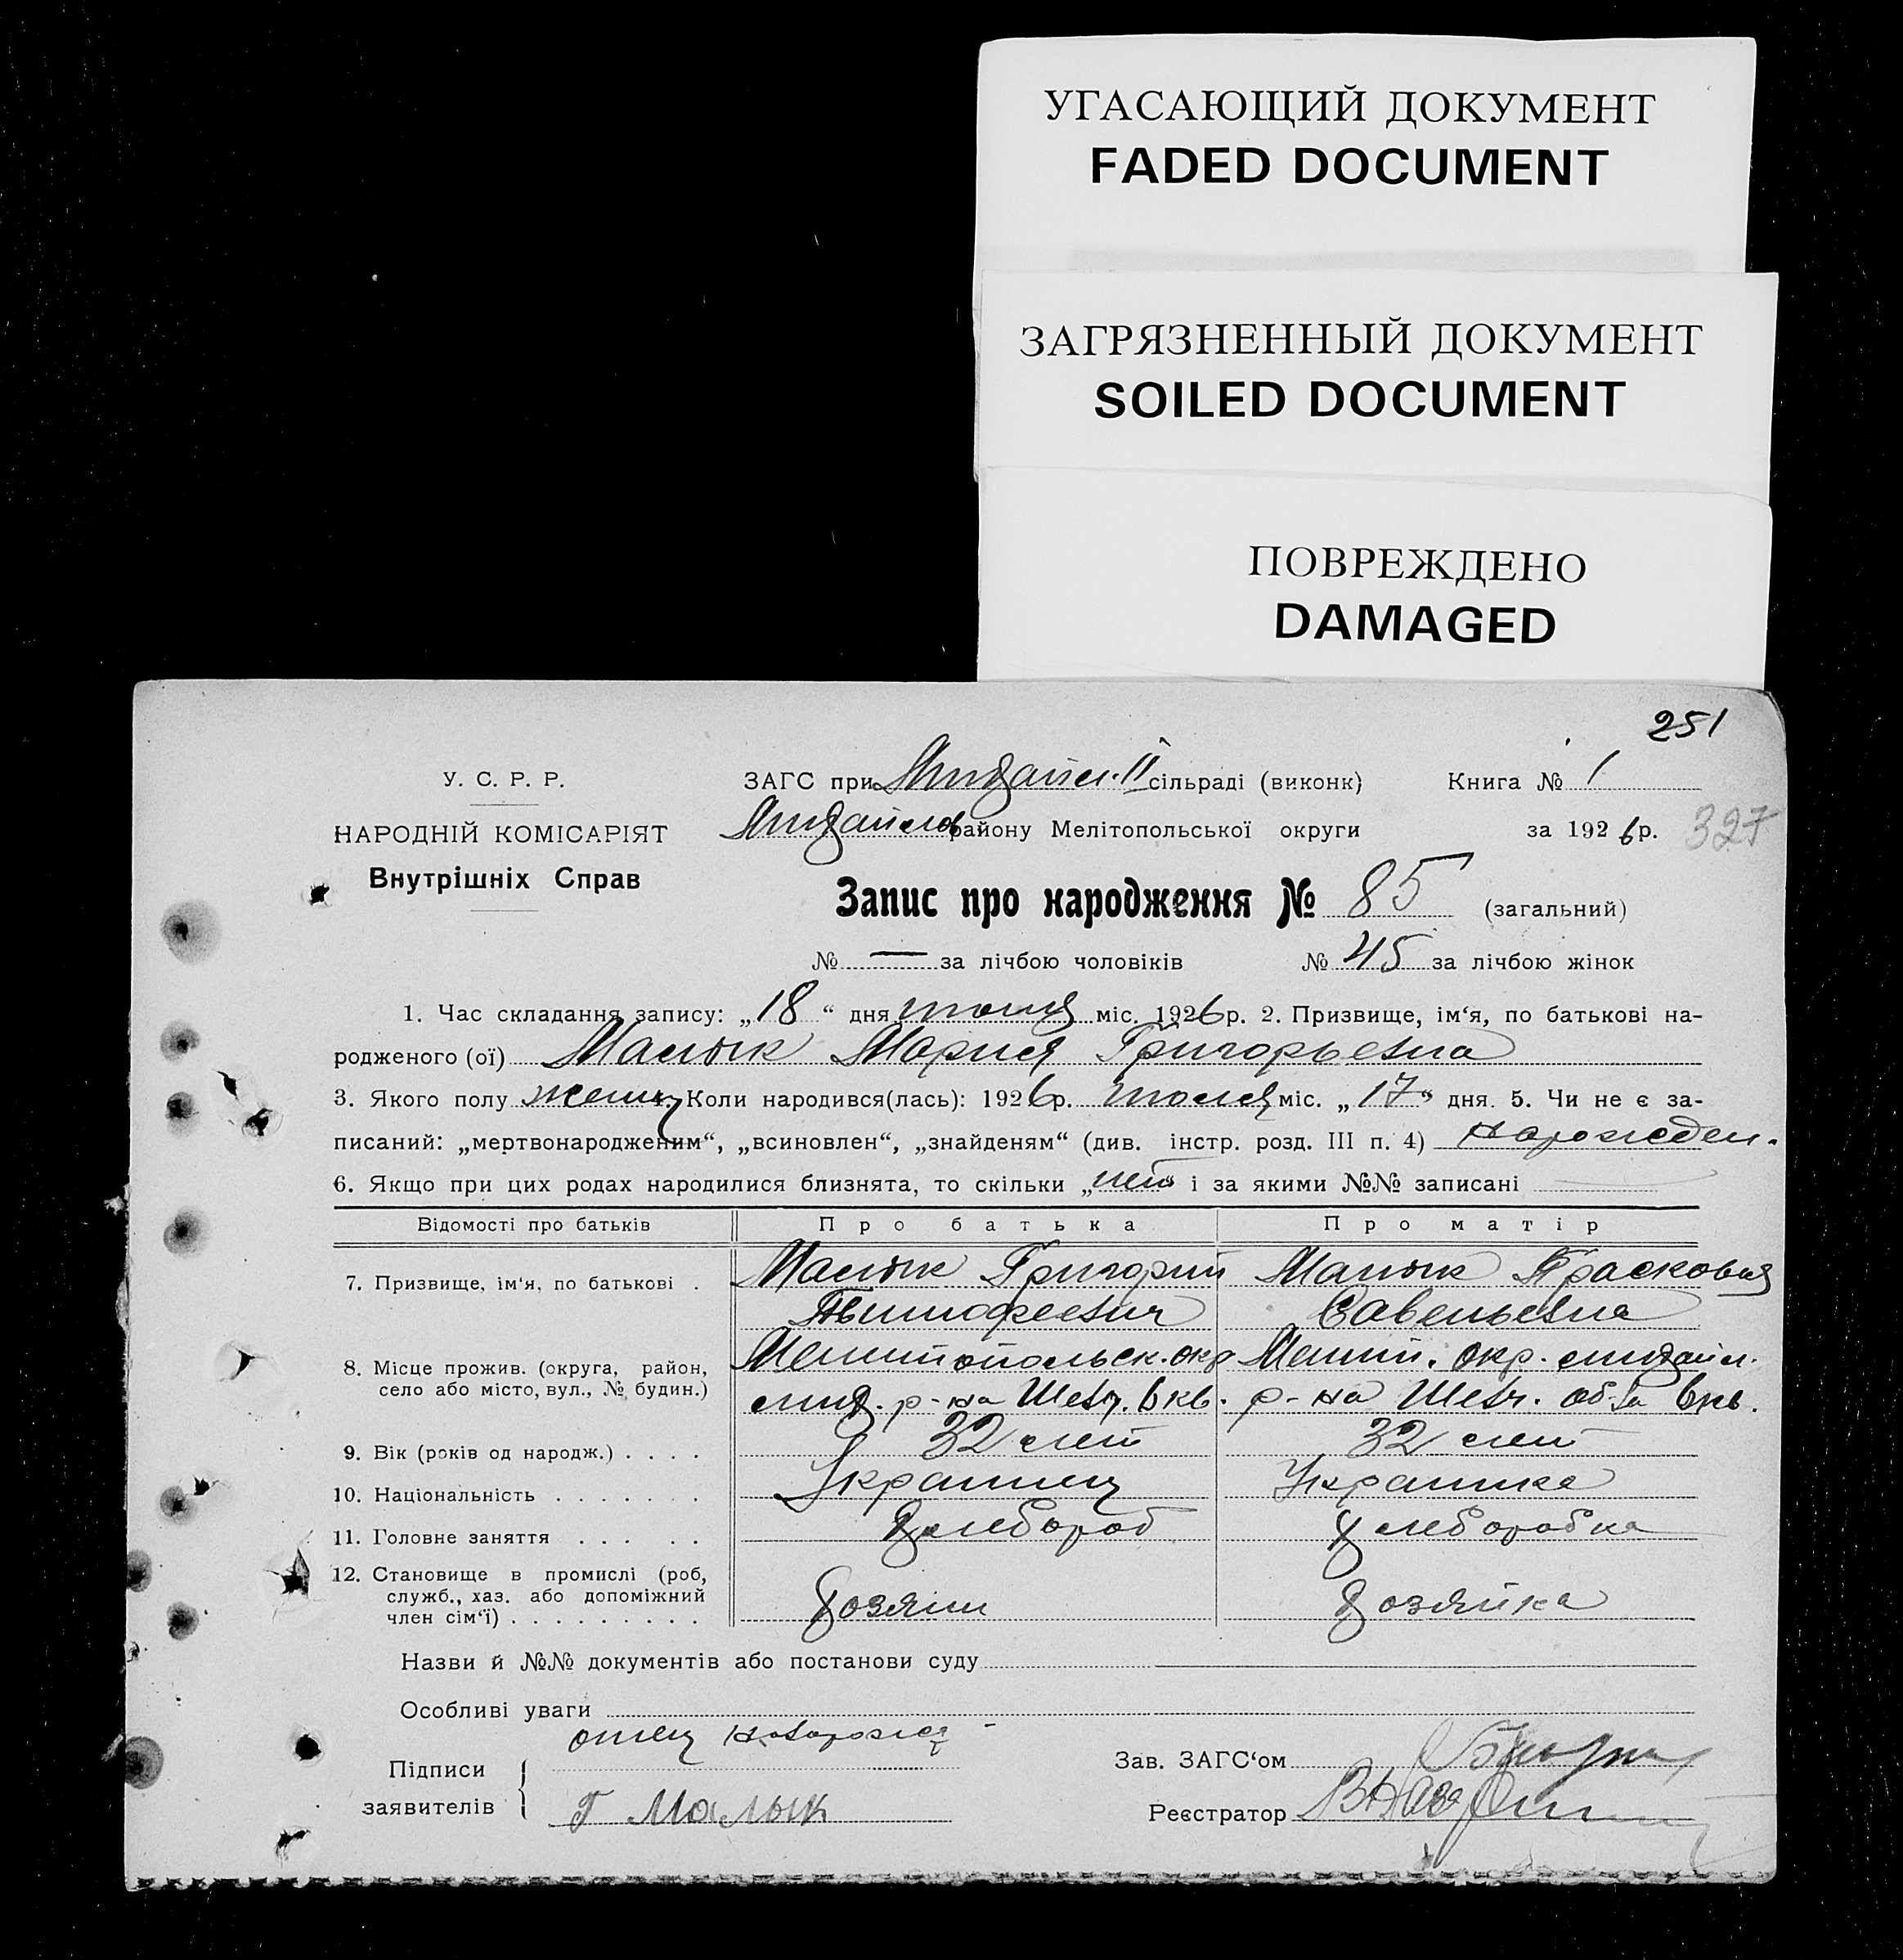 УГАСАЮЩИЙ ДОКУМЕНТ
FADED DOCUMENT
ЗАГРЯЗНЕННЫЙ ДОКУМЕНТ
SOILED DOCUMENT
ПОВРЕЖДЕНО
DAMAGED
251
У. С. Р. Р.
ЗАГС при Михайл. II сільраді (виконк)
Книга № 1
НАРОДНІЙ КОМІСАРІЯТ
Михайлов району Мелітопольської округи
за 1926 р.
327
Внутрішніх Справ
Запис про народження № 85 (загальний)
№ — за лічбою чоловіків № 45 за лічбою жінок
1. Час складання запису: „18“ дня міс. 1926 р. 2. Призвище, ім‘я, по батькові на-
родженого (ої) Малык Мария Григорьевна
3. Якого полу женщ 4. Коли народився(лась): 1926 р. міс. „17“ дня. 5. Чи не є за-
писаний: „мертвонародженим“, „всиновлен“, „знайденям“ (див. інстр. розд. III п. 4)
6. Якщо при цих родах народилися близнята, то скільки „нет“ і за якими №№ записані
Відомості про батьків Про батька Про матір
7. Призвище, ім‘я, по батькові . Малык Григорий Малык Прасковья
Тимофеевич Савельевна
8. Місце прожив. (округа, район, Мелитопольск. окр Мелит. окр. михайл.
село або місто, вул., № будин.) мих. р-на Шевч. 6 кв. р-на Шевч. об-ва 6 кв.
9. Вік (років од народж.) . . . . 32 лет 32 лет
10. Національність . . . . . . . Украинец Украинка
11. Головне заняття . . . . . Хлебороб Хлеборобка
12. Становище в промислі (роб,
служб., хаз. або допоміжний Хозяин Хозяйка
член сім‘ї) . . . . . . . . .
Назви й №№ документів або постанови суду
Особливі уваги
отец
Підписи
заявителів
Г Малык
Зав. ЗАГС‘ом
Реєстратор